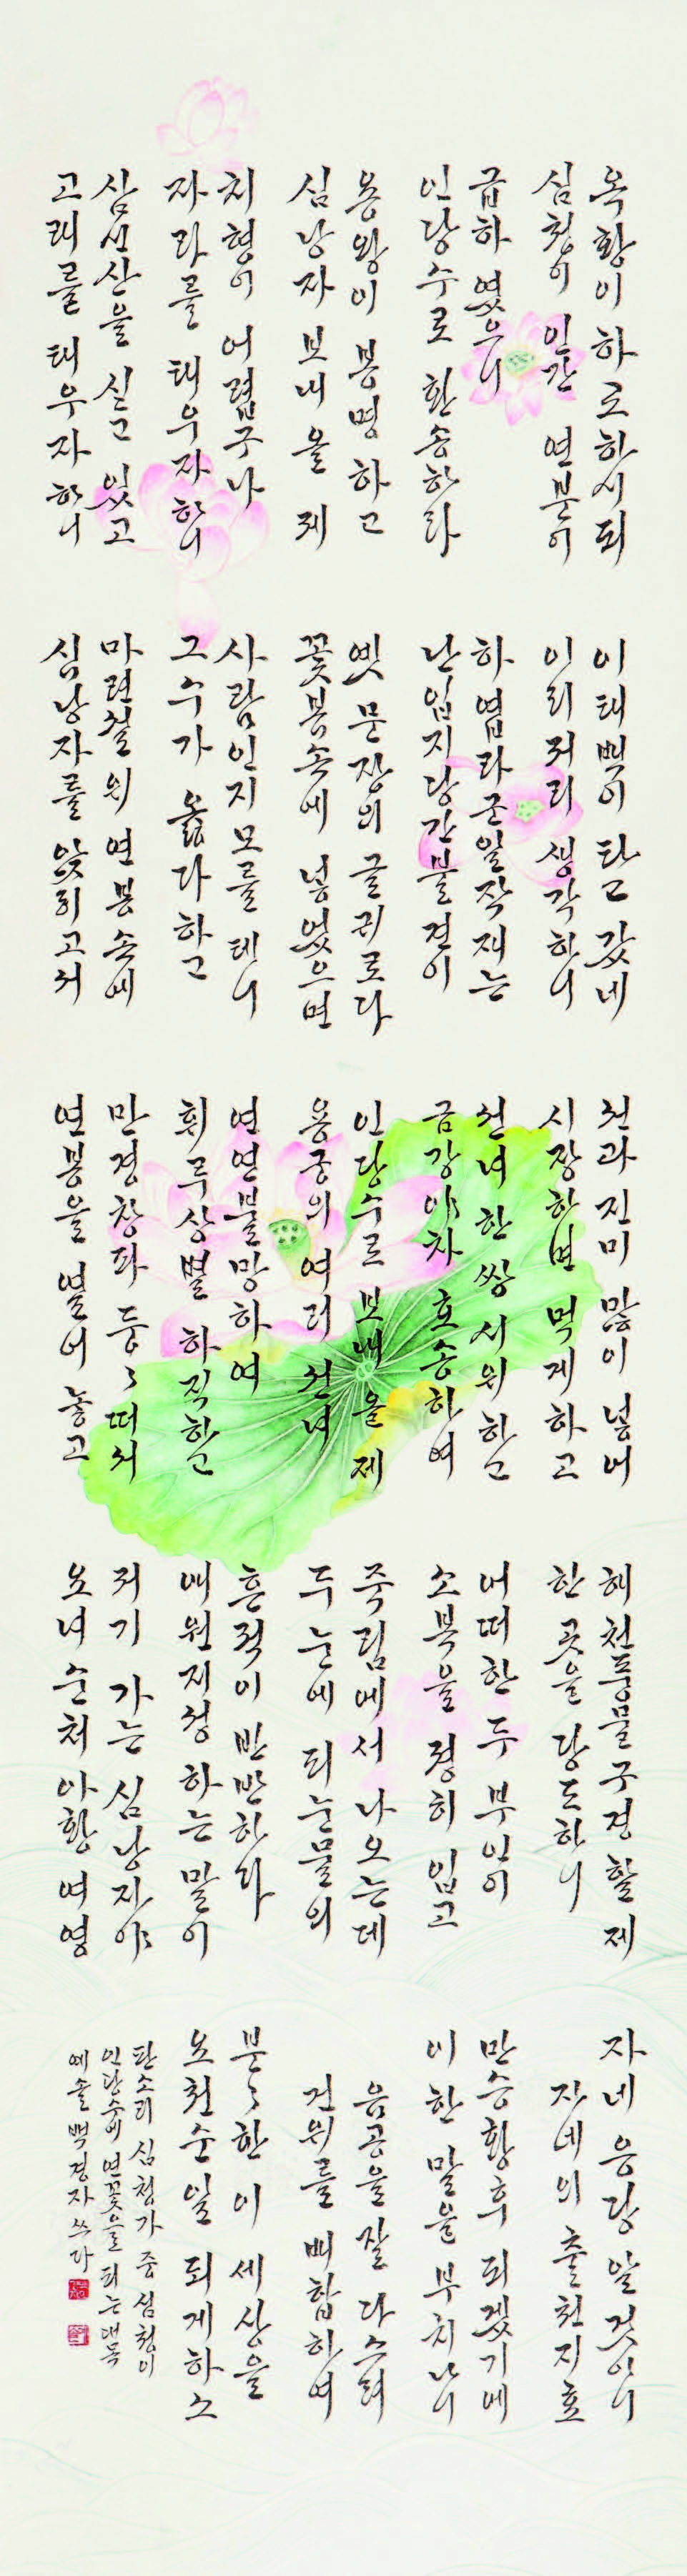 옥황이 하교하시되
심청이 인간 연분이
급하 였으니
인당수로 환송하라
용왕이 봉명하고
심낭자 보내올 제
치형이 어렵구나
자라를 태우자 하니
삼신산을 싣고 있고
고래를 태우자 하니
이태백이 타고 갔네
이리저리 생각하니
하엽라군일작재는
난입지당간불견이
옛 문장의 글귀로다
꽃봉 속에 넣었으면
사람인지 모를 테니
그 수가 옳다 하고
마련철위 연봉 속에
심낭자를 앉히고서
선과 진미 많이 넣어
시장하면 먹게 하고
선녀 한 쌍 시위하고
금강야차 호송하여
인당수로 보내올 제
용궁의 여러 선녀
연연불망하여
휘루상별 하직하고
만경창파 둥〻 떠서
연봉을 열어 놓고
해천풍물 구경할 제
한 곳을 당도하니
어떠한 두 부인이
소복을 정히 입고
죽림에서 나오는데
두 눈에 피눈물의
흔적이 반반하라
애원지성 하는 말이
저기 가는 심낭자야
요녀순처 아황 여영
자네 응당 알 것이니
자네의 출천지효
만승황후 되겠기에
이 한 말을 부치나니
음공을 잘 다스려
건위를 배합하여
분〻한 이 세상을
요천순일 되게 하소
판소리 심청가 중 심청이
인당수에 연꽃을 피는 대목
예솔 백경자 쓰다